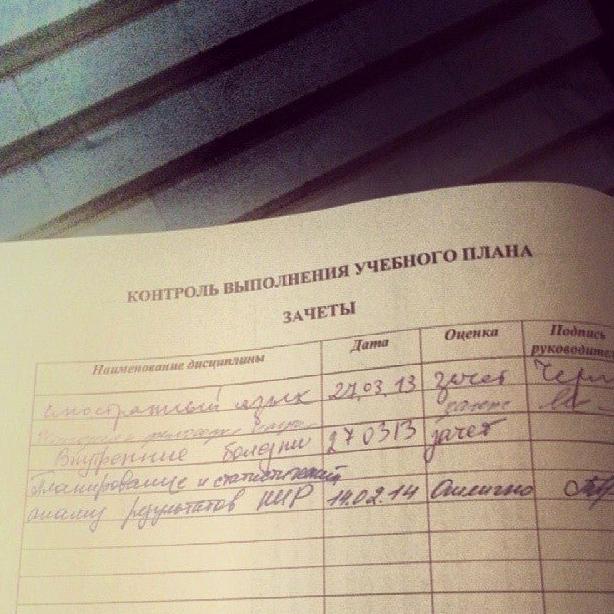 КОНТРОЛЬ ВЫПОЛНЕНИЯ УЧЕБНОГО ПЛАНА
ЗАЧЕТЫ
Наименование дисциплины Дата Оценка Подпись руководител
иностранный язык 27.03.13 зачет
История и философия зачет
Внутренние болезни 27 03 13 зачет
Планирование и статистический
анализ результатов НИР 14.02.14 Отлично